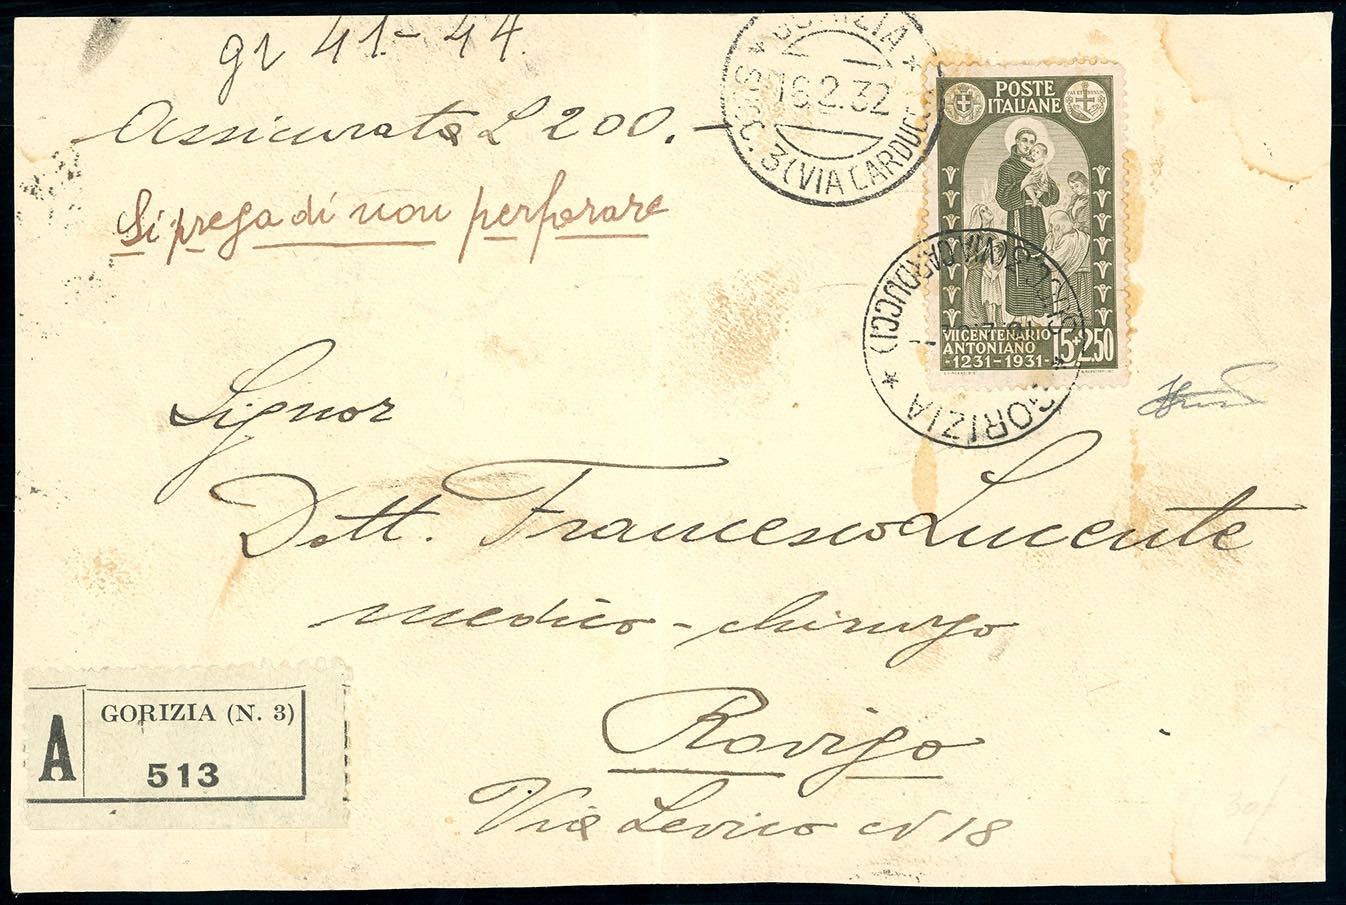 gr 41 - 44.
Assicurata L 200. -
Si prega di non perforare
* GORIZIA *
16.2.32
SUCC. 3 (VIA CARDUCCI)
POSTE
ITALIANE
VII CENTENARIO
ANTONIANO
-1231-1931-
L5+2.50
SUCC. 3 (VIA CARDUCCI)
* GORIZIA *
Signor
Dott. Francesco Lucente
medico - chirurgo
Rovigo
Via Levico N 18
A
GORIZIA (N. 3)
513